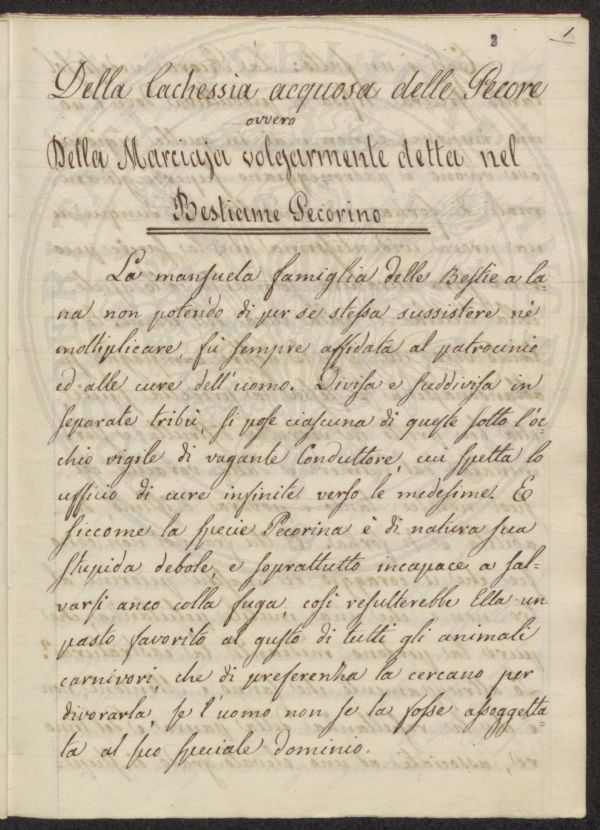 8 1
Della Cachessia acquosa delle Pecore
ovvero
Della Marciaja volgarmente detta nel
Bestiame Pecorino
La mansueta famiglia delle Bestie a la=
na non potendo di per se stessa sussistere nè
moltiplicare, fù sempre affidata al patrocinio
ed alle cure dell'uomo. Divisa e suddivisa in
separate tribù, si pose ciascuna di queste sotto l'oc=
chio vigile di vagante Conduttore, cui spetta lo
ufficio di cure infinite verso le medesime. E
siccome la specie Pecorina è di natura sua
stupida debole, e soprattutto incapace a sal=
varsi anco colla fuga, così resulterebbe Ella un
pasto favorito al gusto di tutti gli animali
carnivori, che di preferenza la cercano per
divorarla, se l'uomo non se la fosse assoggetta=
ta al suo speciale dominio.